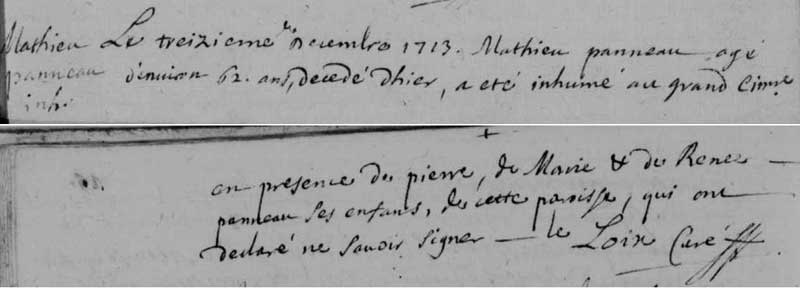 Mathieu Le treizieme decembre 1713. Mathieu panneau agé
panneau d'environ 62. ans, decedé d'hier, a eté inhumé au grand Cimre
inh.
en presence de pierre, de Marie & de Renee
panneau ses enfans, de cette paroisse, qui ont
declaré ne savoir signer — le Loix Curé